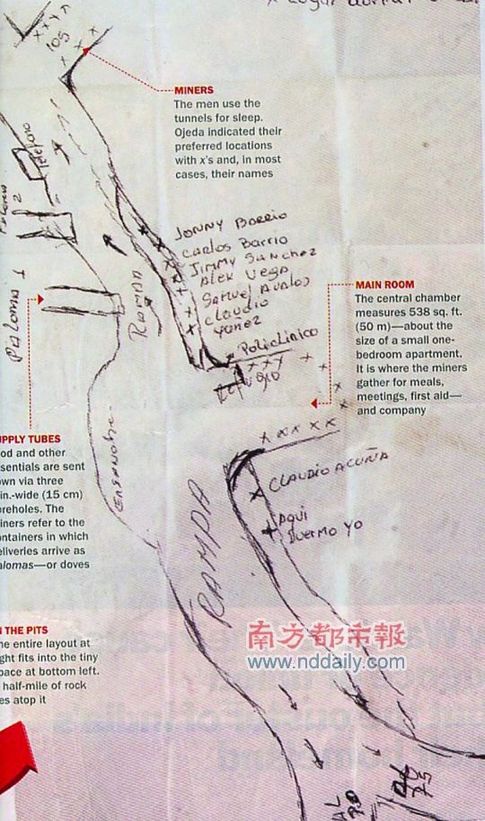 105
MINERS
The men use the
tunnels for sleep.
Ojeda indicated their
preferred locations
with x's and, in most
cases, their names
Telefono
2
JONNY BARRIO
CARLOS BARRIO
JIMMY SANCHEZ
ALEX VEGA
SAMUEL AVALOS
CLAUDIO
YAÑEZ
PALOMA 1
RAMPA
POLICLINICO
Refugio
MAIN ROOM
The central chamber
measures 538 sq. ft.
(50 m)—about the
size of a small one-
bedroom apartment.
It is where the miners
gather for meals,
meetings, first aid—
and company
UPPLY TUBES
ood and other
sentials are sent
own via three
in.-wide (15 cm)
oreholes. The
iners refer to the
ontainers in which
eliveries arrive as
alomas—or doves
RAMPA
CLAUDIO ACUÑA
AQUI
DUERMO YO
N THE PITS
he entire layout at
ght fits into the tiny
pace at bottom left.
half-mile of rock
es atop it
南方都市報
www.nddaily.com